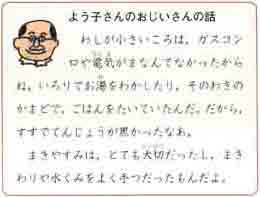 よう子さんのおじいさんの話
わしが小さいころは、ガスコン
ロや電気がまなんてなかったから
ね。いろりでお湯をわかしたり、そのわきの
かまどで、ごはんをたいていたんだ。だから、
すすでてんじょうが黒かったなあ。
まきやすみは、とても大切だったし、まき
わりや水くみをよく手つだったもんだよ。